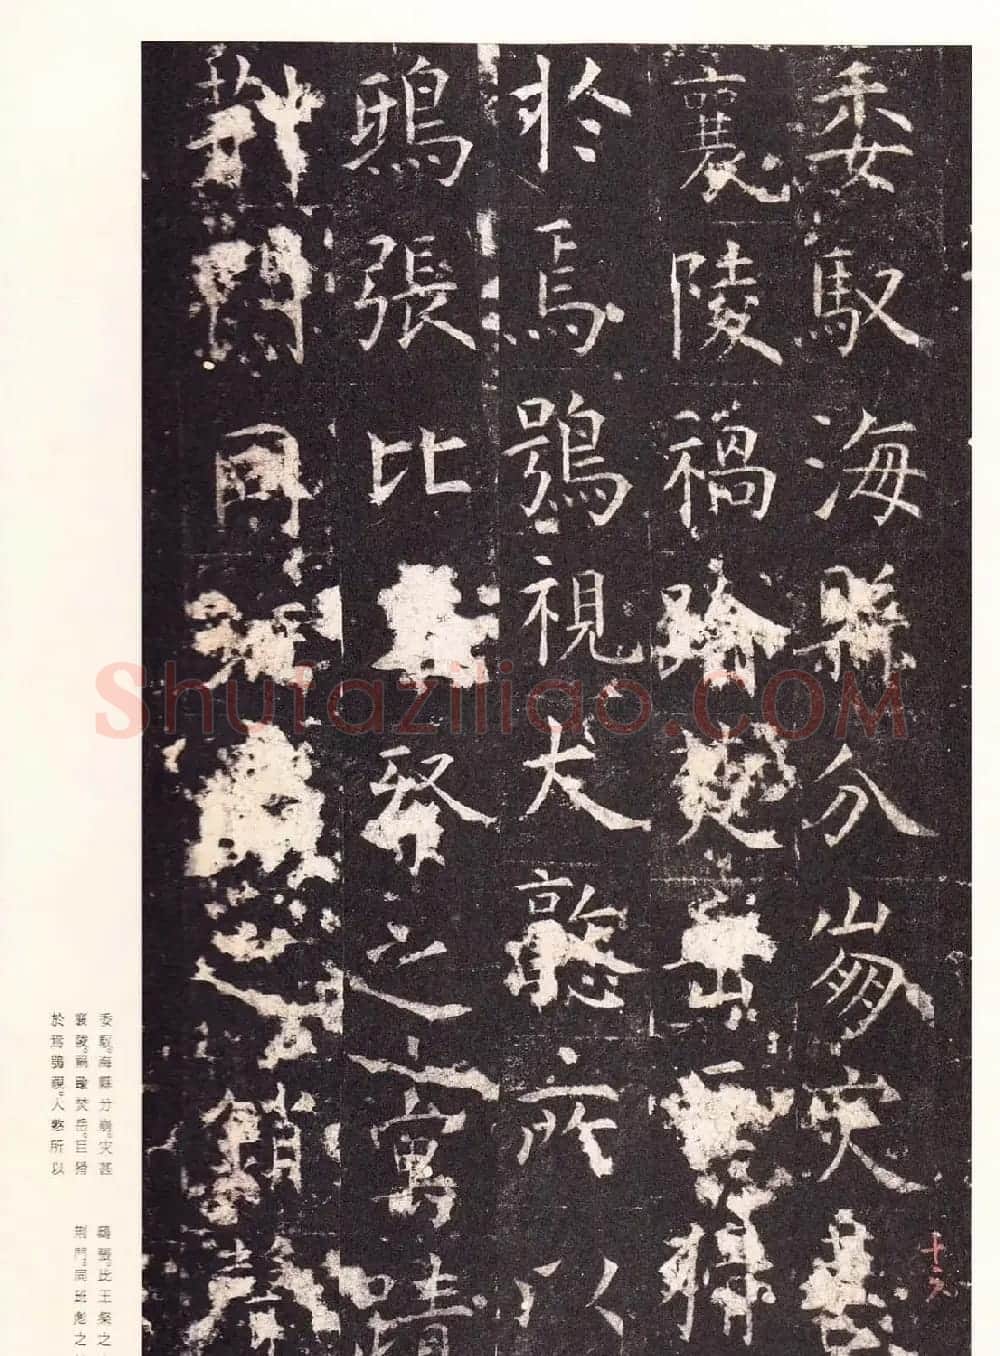 委馭海縣分崩災甚
襄陵禍踰焚岳巨猾
於焉鶚視犬憨所以
鴟張比王粲之寓
荊門同班彪之
十六
委馭。海縣分崩。災甚
襄陵。禍踰焚岳。巨猾
於焉鶚視。人憝所以
鴟張。比王粲之
荊門。同班彪之
Shufaziliao.COM